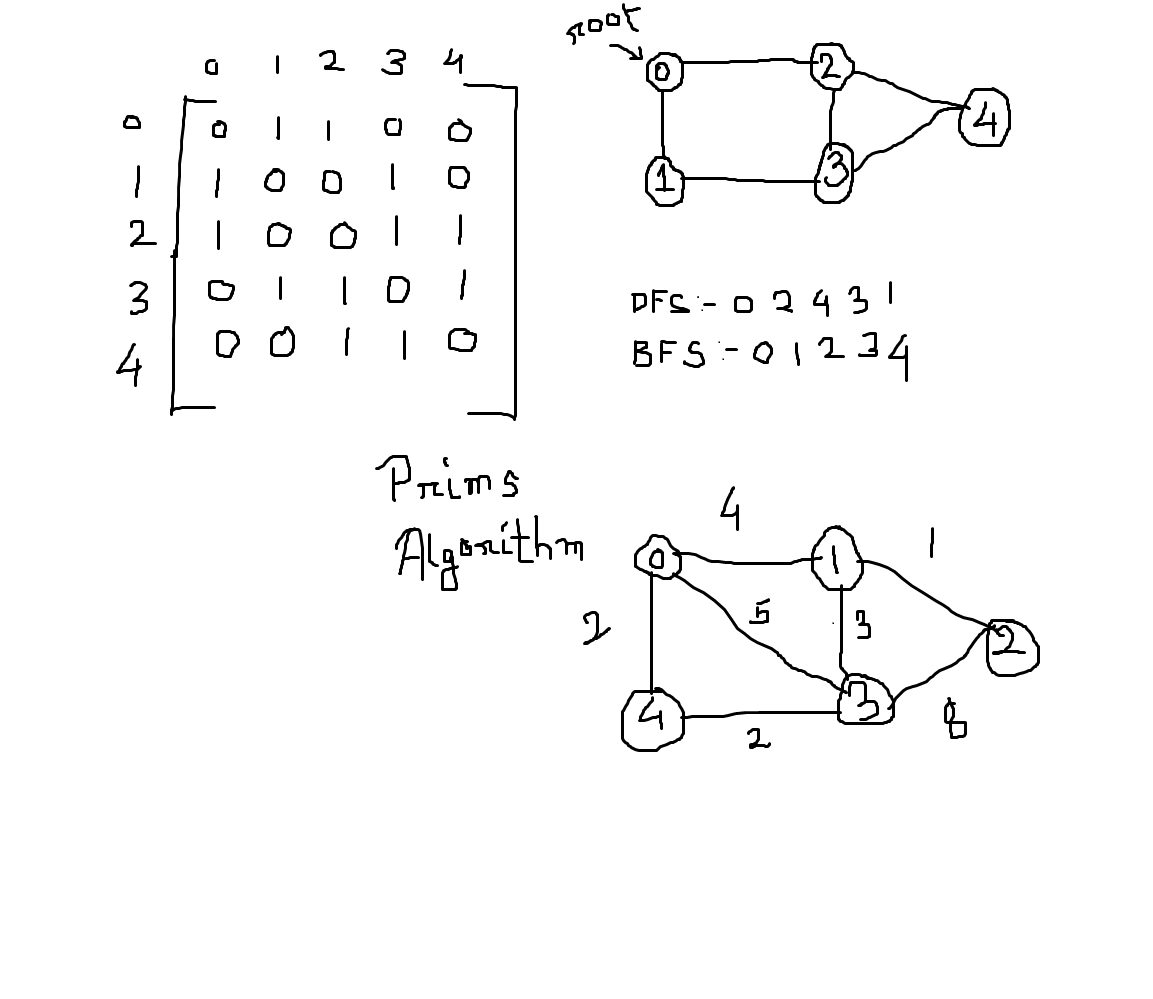 0 1 2 3 4
0 0 1 1 0 0
1 1 0 0 1 0
2 1 0 0 1 1
3 0 1 1 0 1
4 0 0 1 1 0
root
0 2
4
1 3
DFS :- 0 2 4 3 1
BFS :- 0 1 2 3 4
Prims
Algorithm
4 1
0 1
2 5 3 2
4 3
2 8